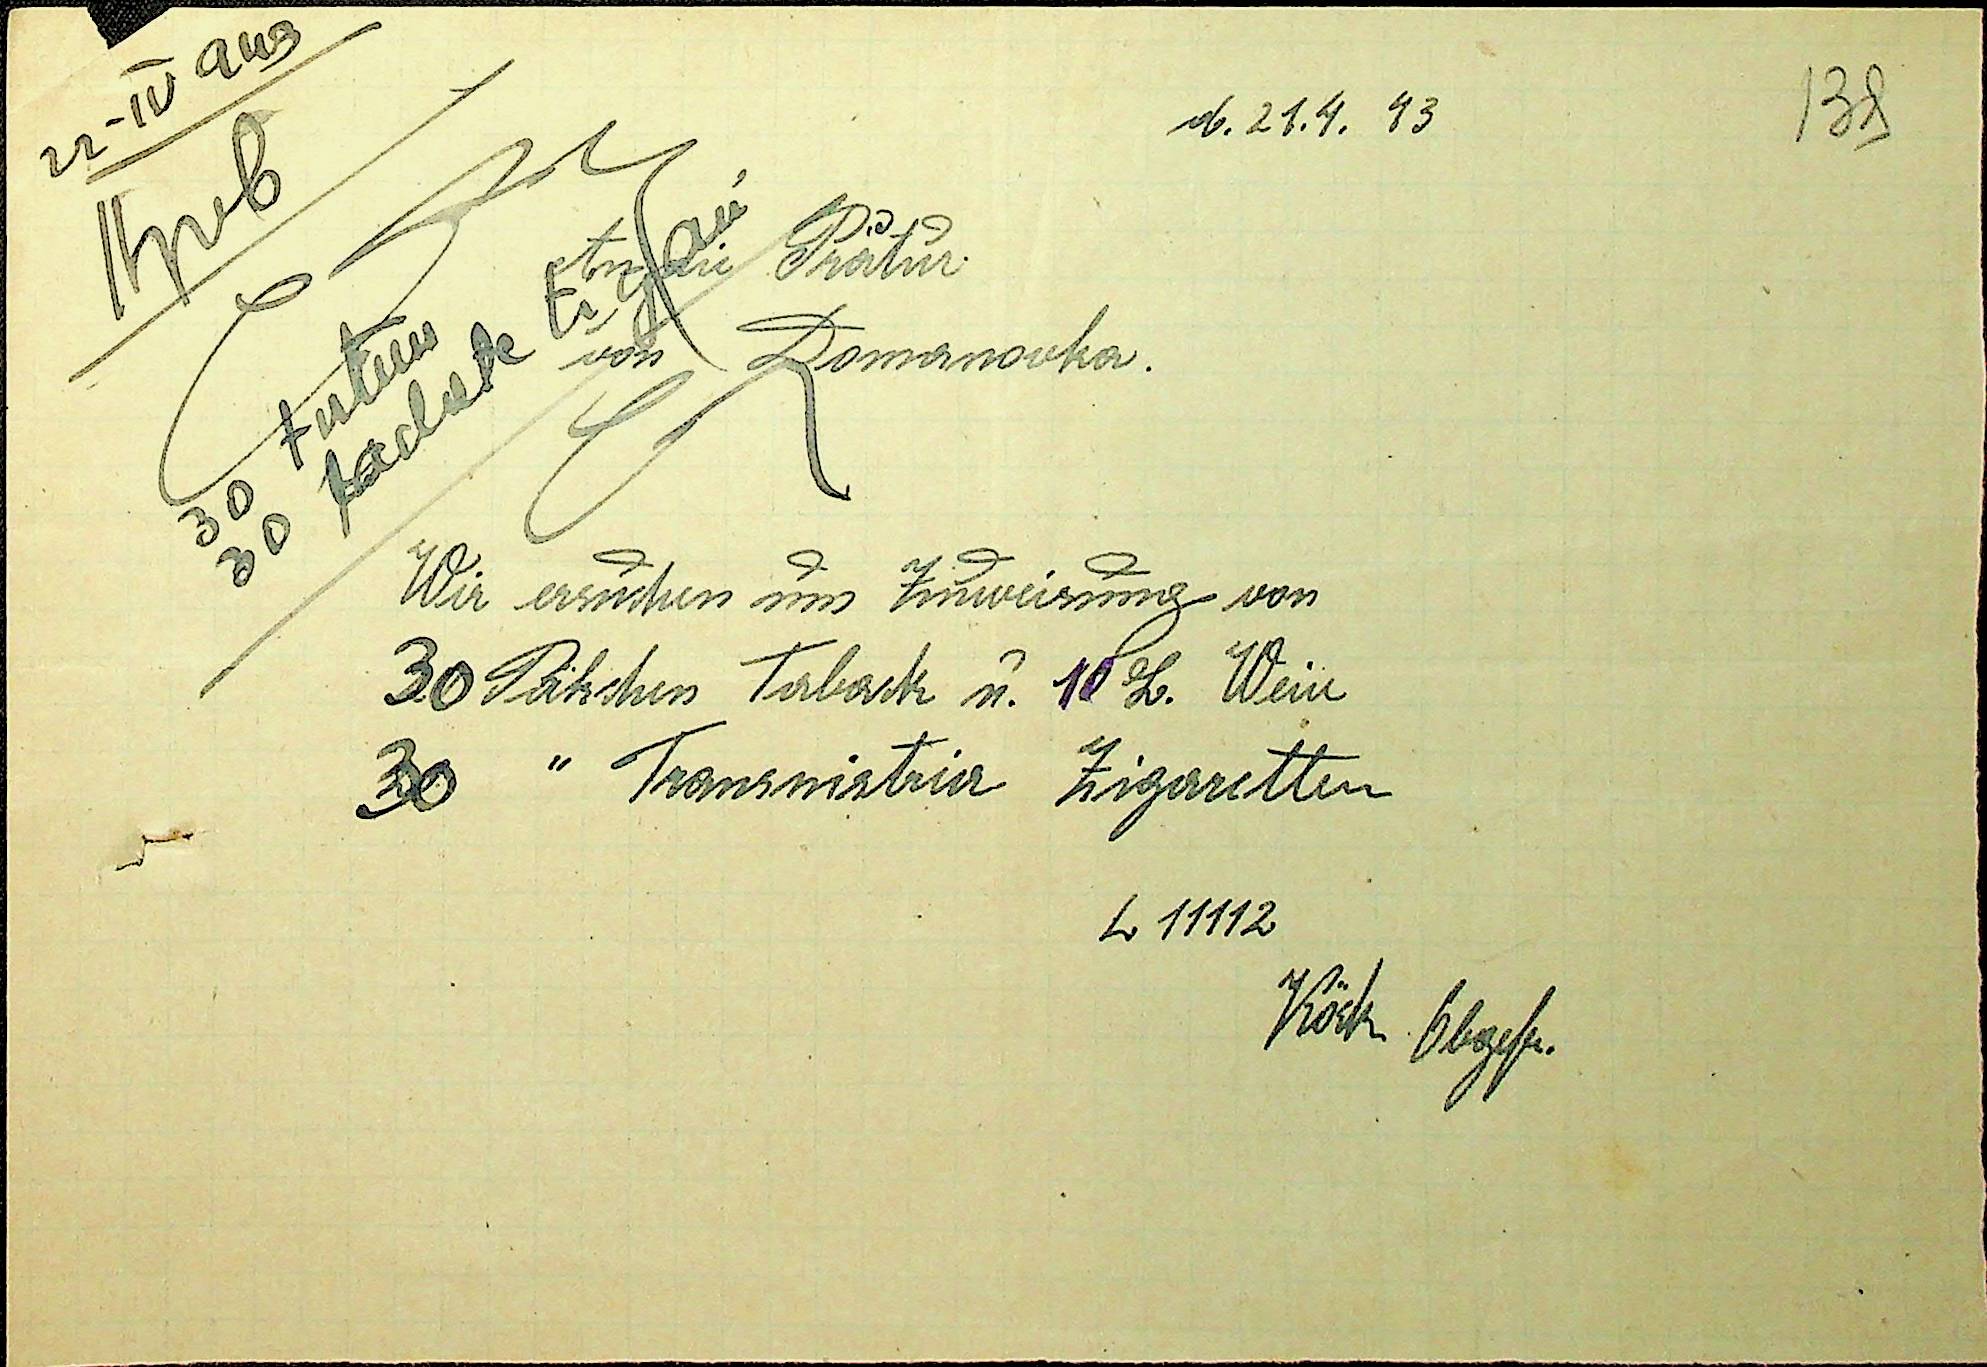 22-IV 943
138
d. 21.4. 43
An die Prätur
von Domanovka.
30 tutun
30 pachete țigări
Wir ersuchen um Zuweisung von
30 Päkchen Taback u. 10 L. Wein
30 " Transnistria Zigaretten
L 11112
Köck Obgefr.